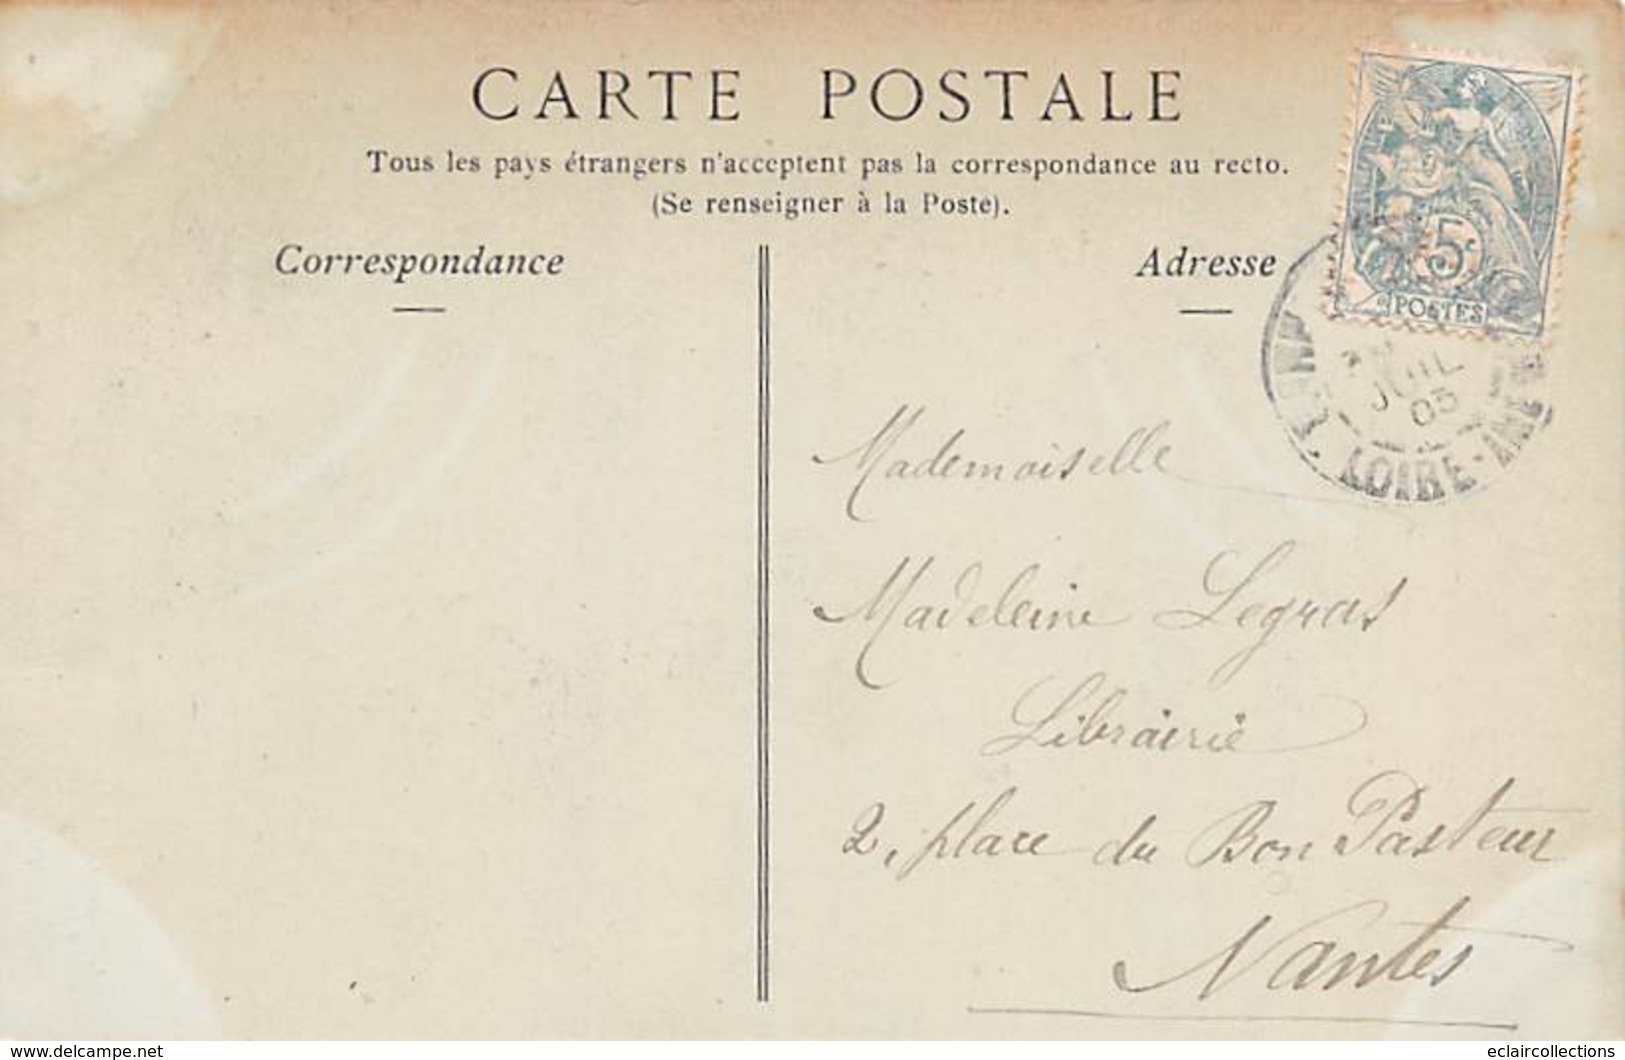 CARTE POSTALE
Tous les pays étrangers n'acceptent pas la correspondance au recto.
(Se renseigner à la Poste).
Correspondance
Adresse
5c
POSTES
JUIL
05
LOIRE-
Mademoiselle
Madeleine Legras
Librairie
2, place du Bon Pasteur
Nantes
www.delcampe.net
eclaircollections